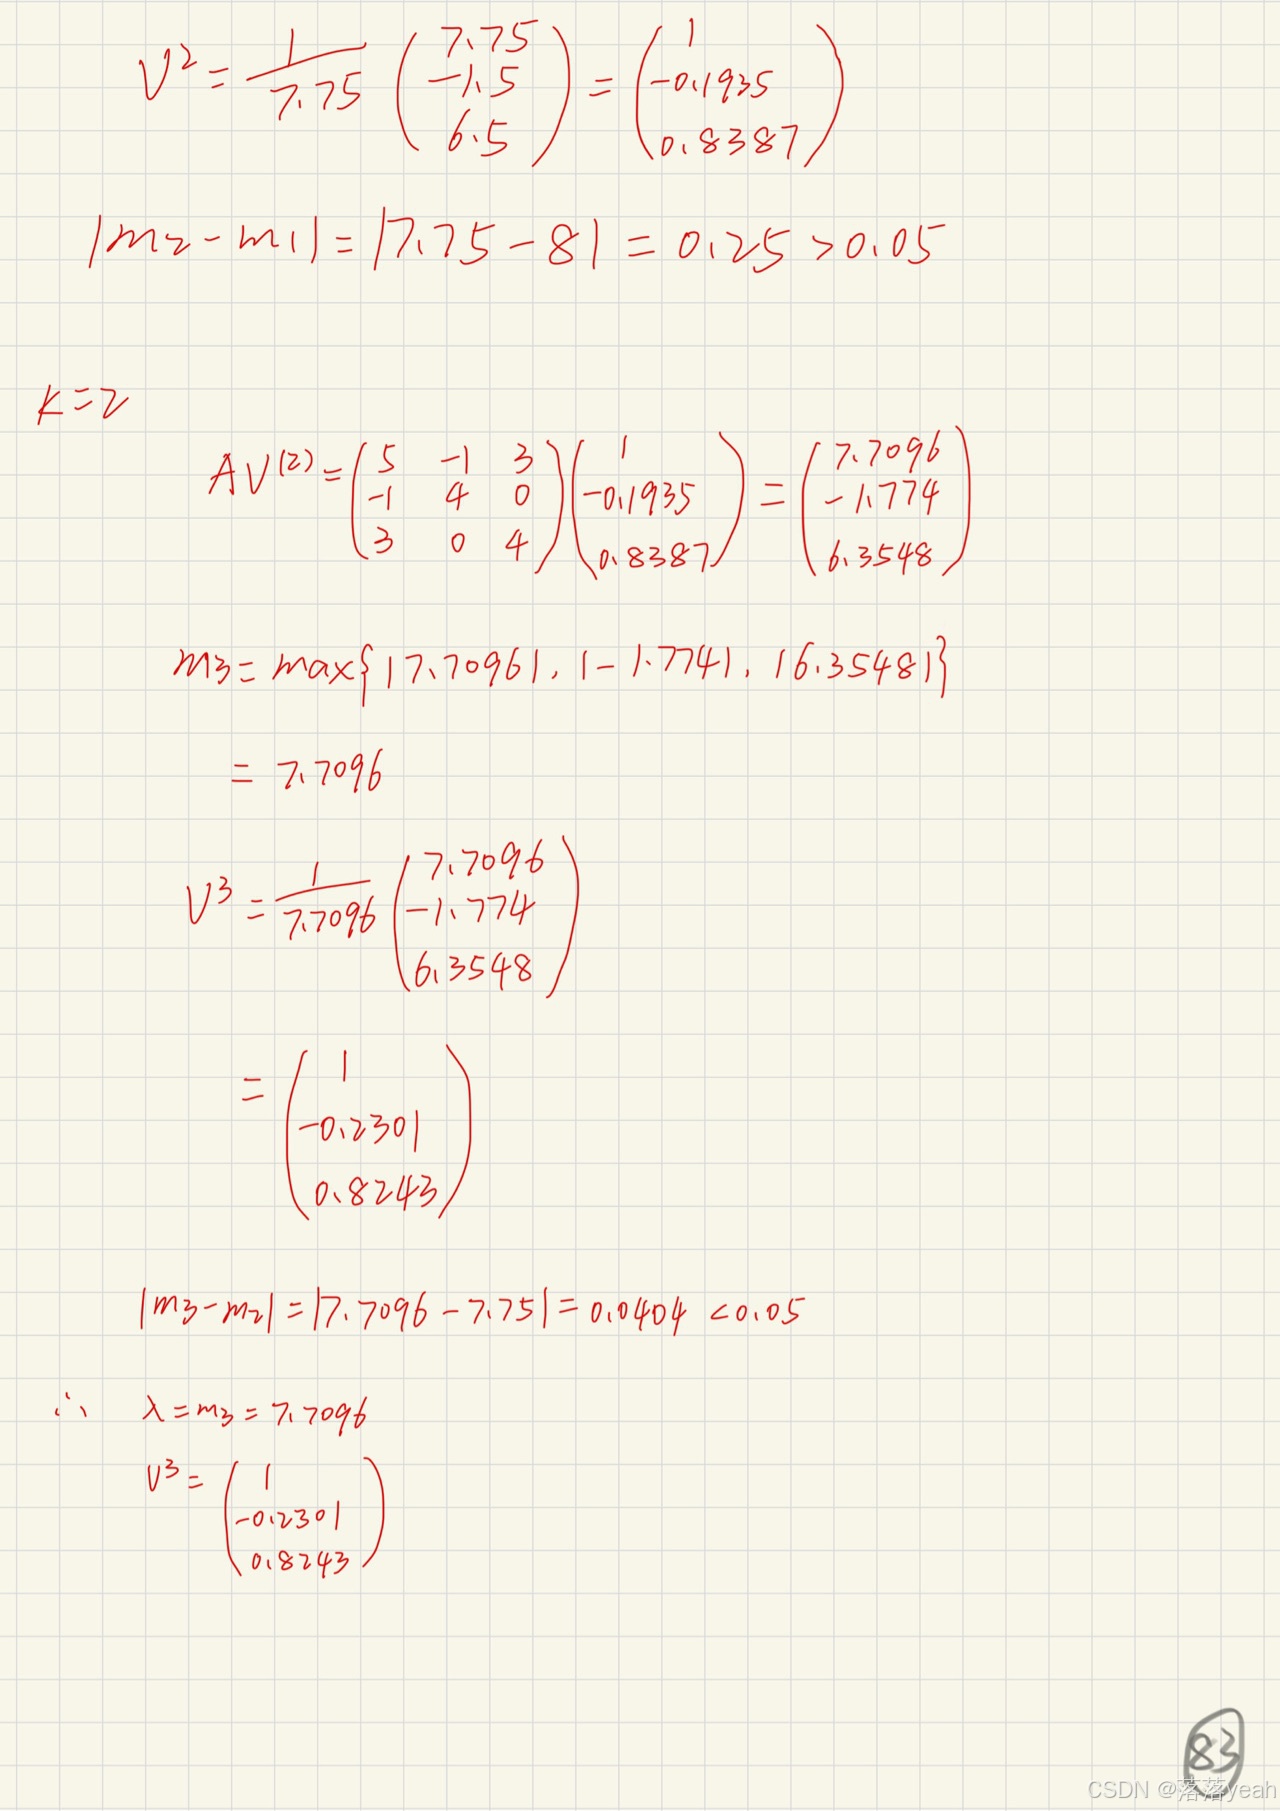 V² = 1/7.75 (7.75 -1.5 6.5) = (1 -0.1935 0.8387)
|m2-m1| = |7.75-8| = 0.25 > 0.05
K=2
AV⁽²⁾ = (5 -1 3 -1 4 0 3 0 4)(1 -0.1935 0.8387) = (7.7096 -1.774 6.3548)
m3 = max{|7.7096|, |-1.774|, |6.3548|}
= 7.7096
V³ = 1/7.7096 (7.7096 -1.774 6.3548)
= (1 -0.2301 0.8243)
|m3-m2| = |7.7096-7.75| = 0.0404 < 0.05
∴ λ = m3 = 7.7096
V³ = (1 -0.2301 0.8243)
83
CSDN @落落yeah